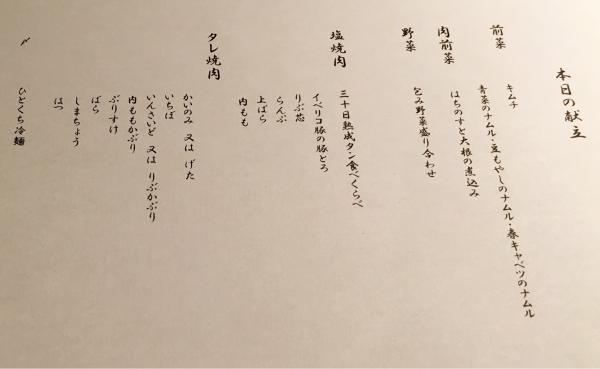 本日の献立
前菜
キムチ
青菜のナムル・豆もやしのナムル・春キャベツのナムル
肉前菜
はちのすと大根の煮込み
野菜
包み野菜盛り合わせ
塩焼肉
三十日熟成タン食べくらべ
イベリコ豚の豚とろ
りぶ芯
らんぷ
上ばら
内もも
タレ焼肉
かいのみ 又は げた
いちぼ
いんさいど 又は りぶかぶり
内ももかぶり
ぶりすけ
ばら
しまちょう
はつ
〆
ひとくち冷麺